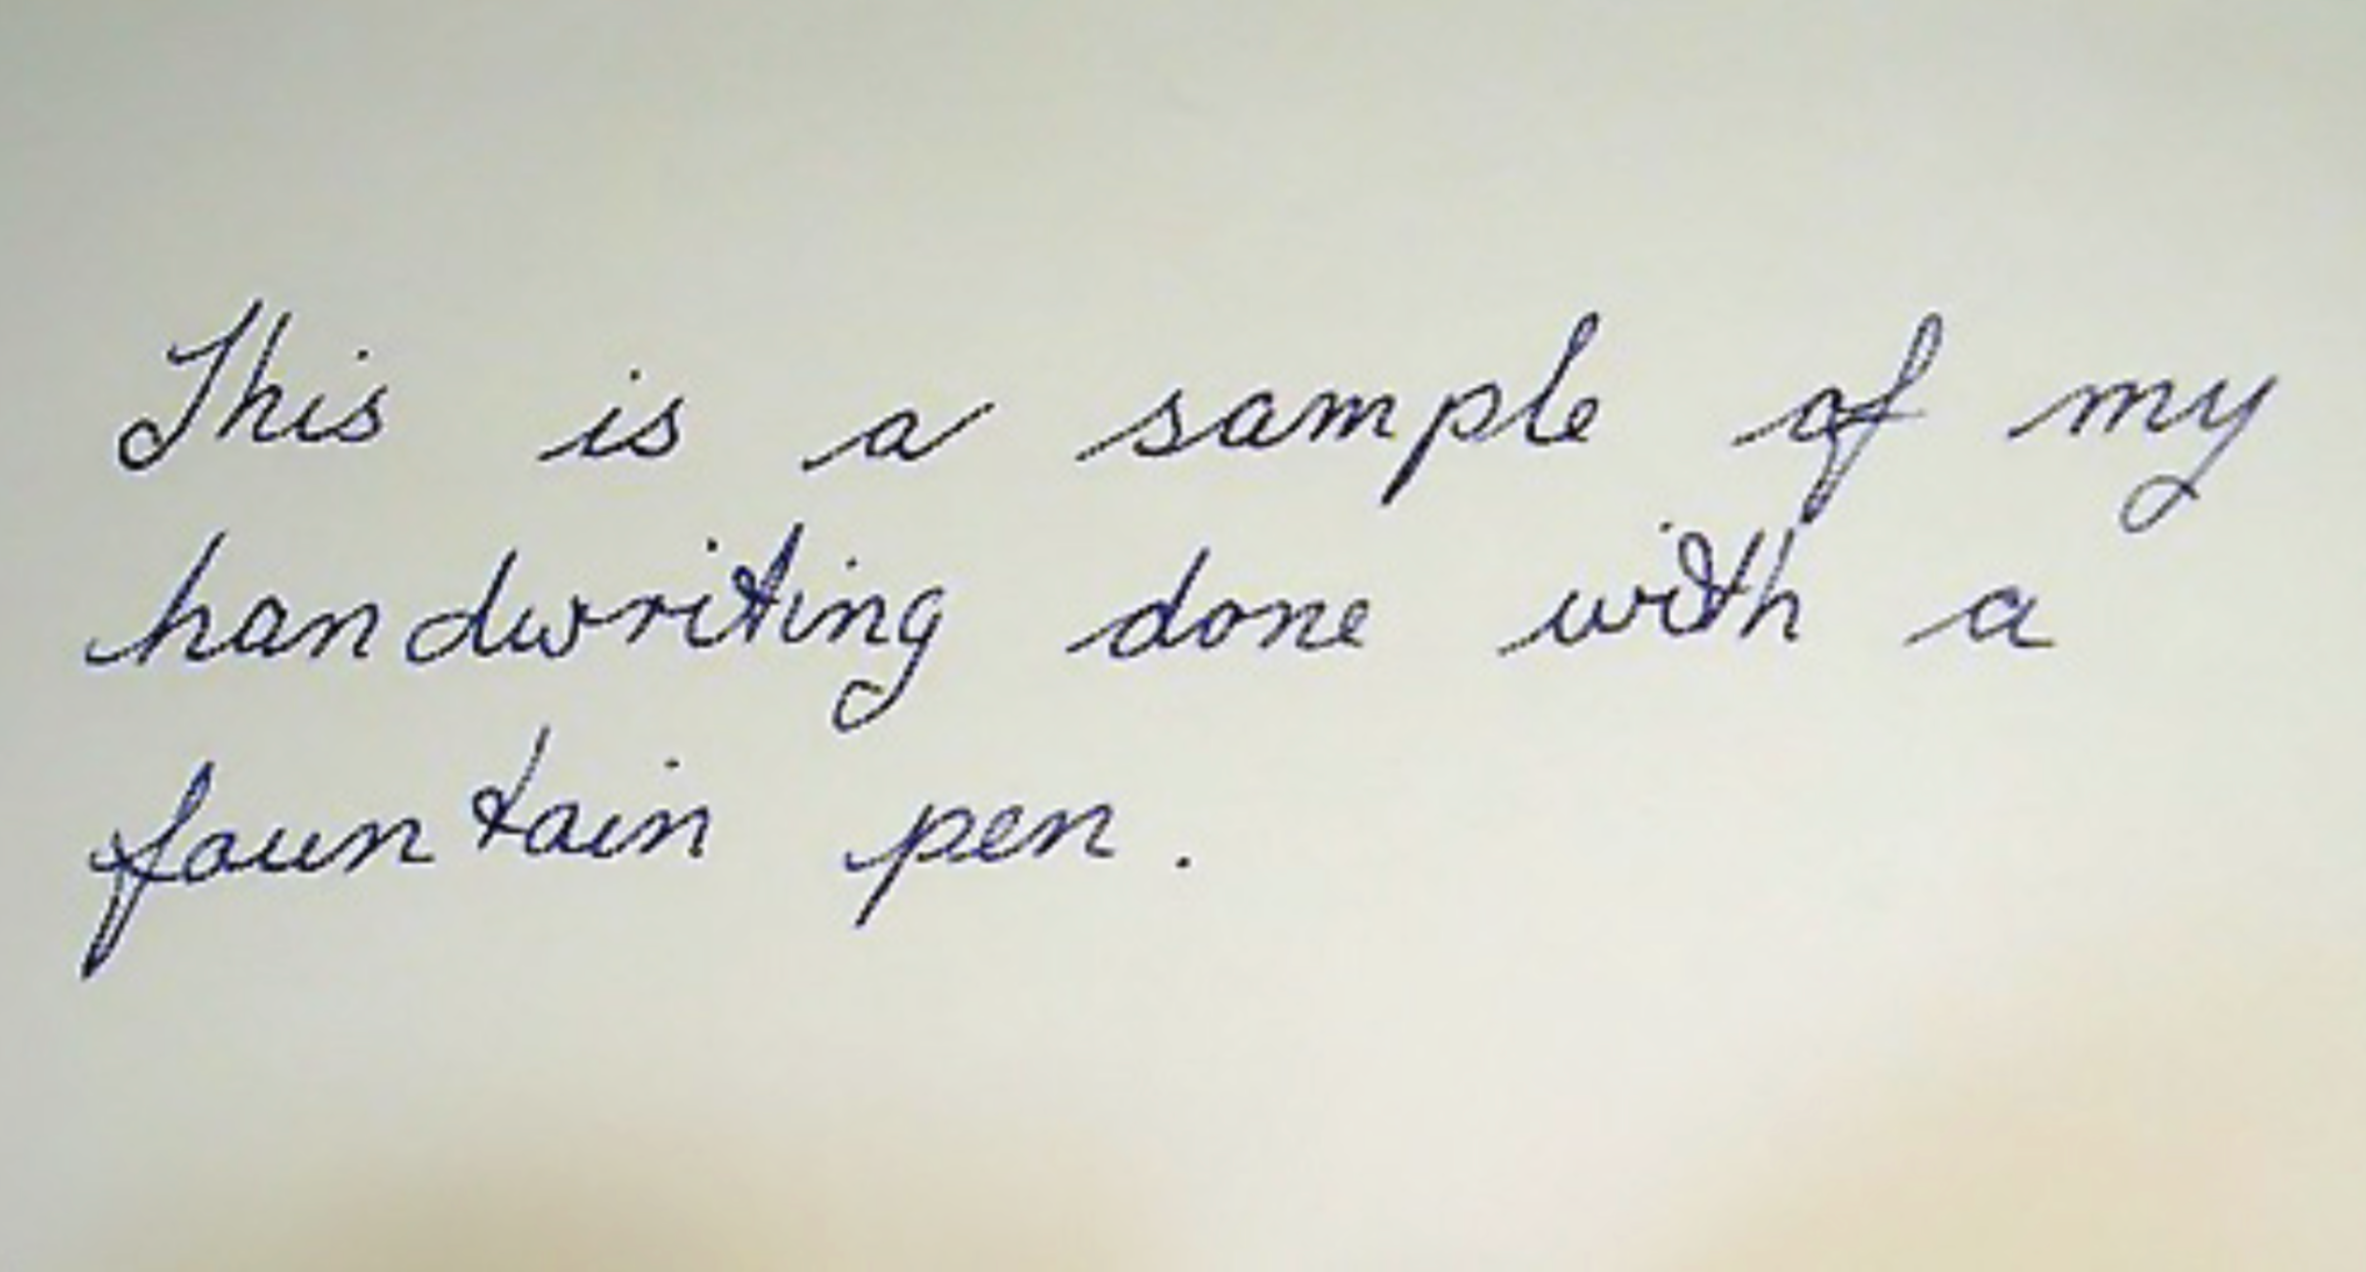 This is a sample of my
handwriting done with a
fountain pen.